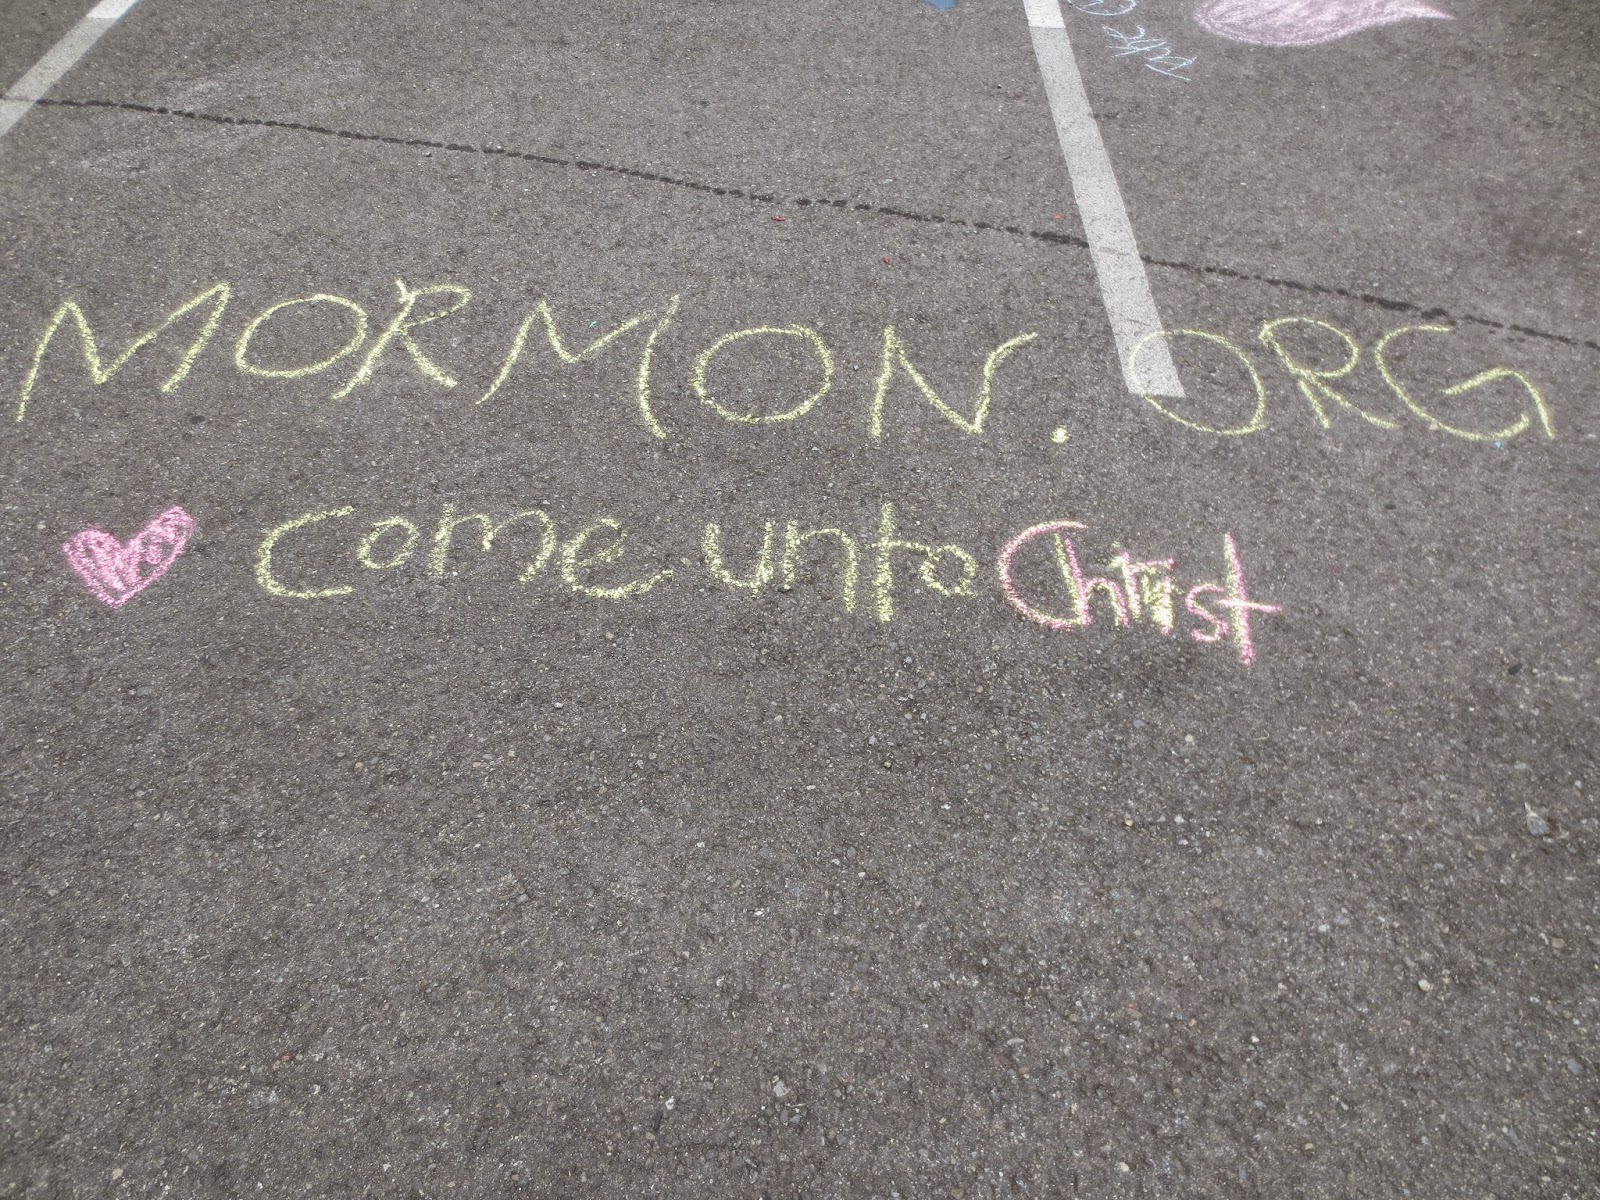 MORMON.ORG
come unto Christ